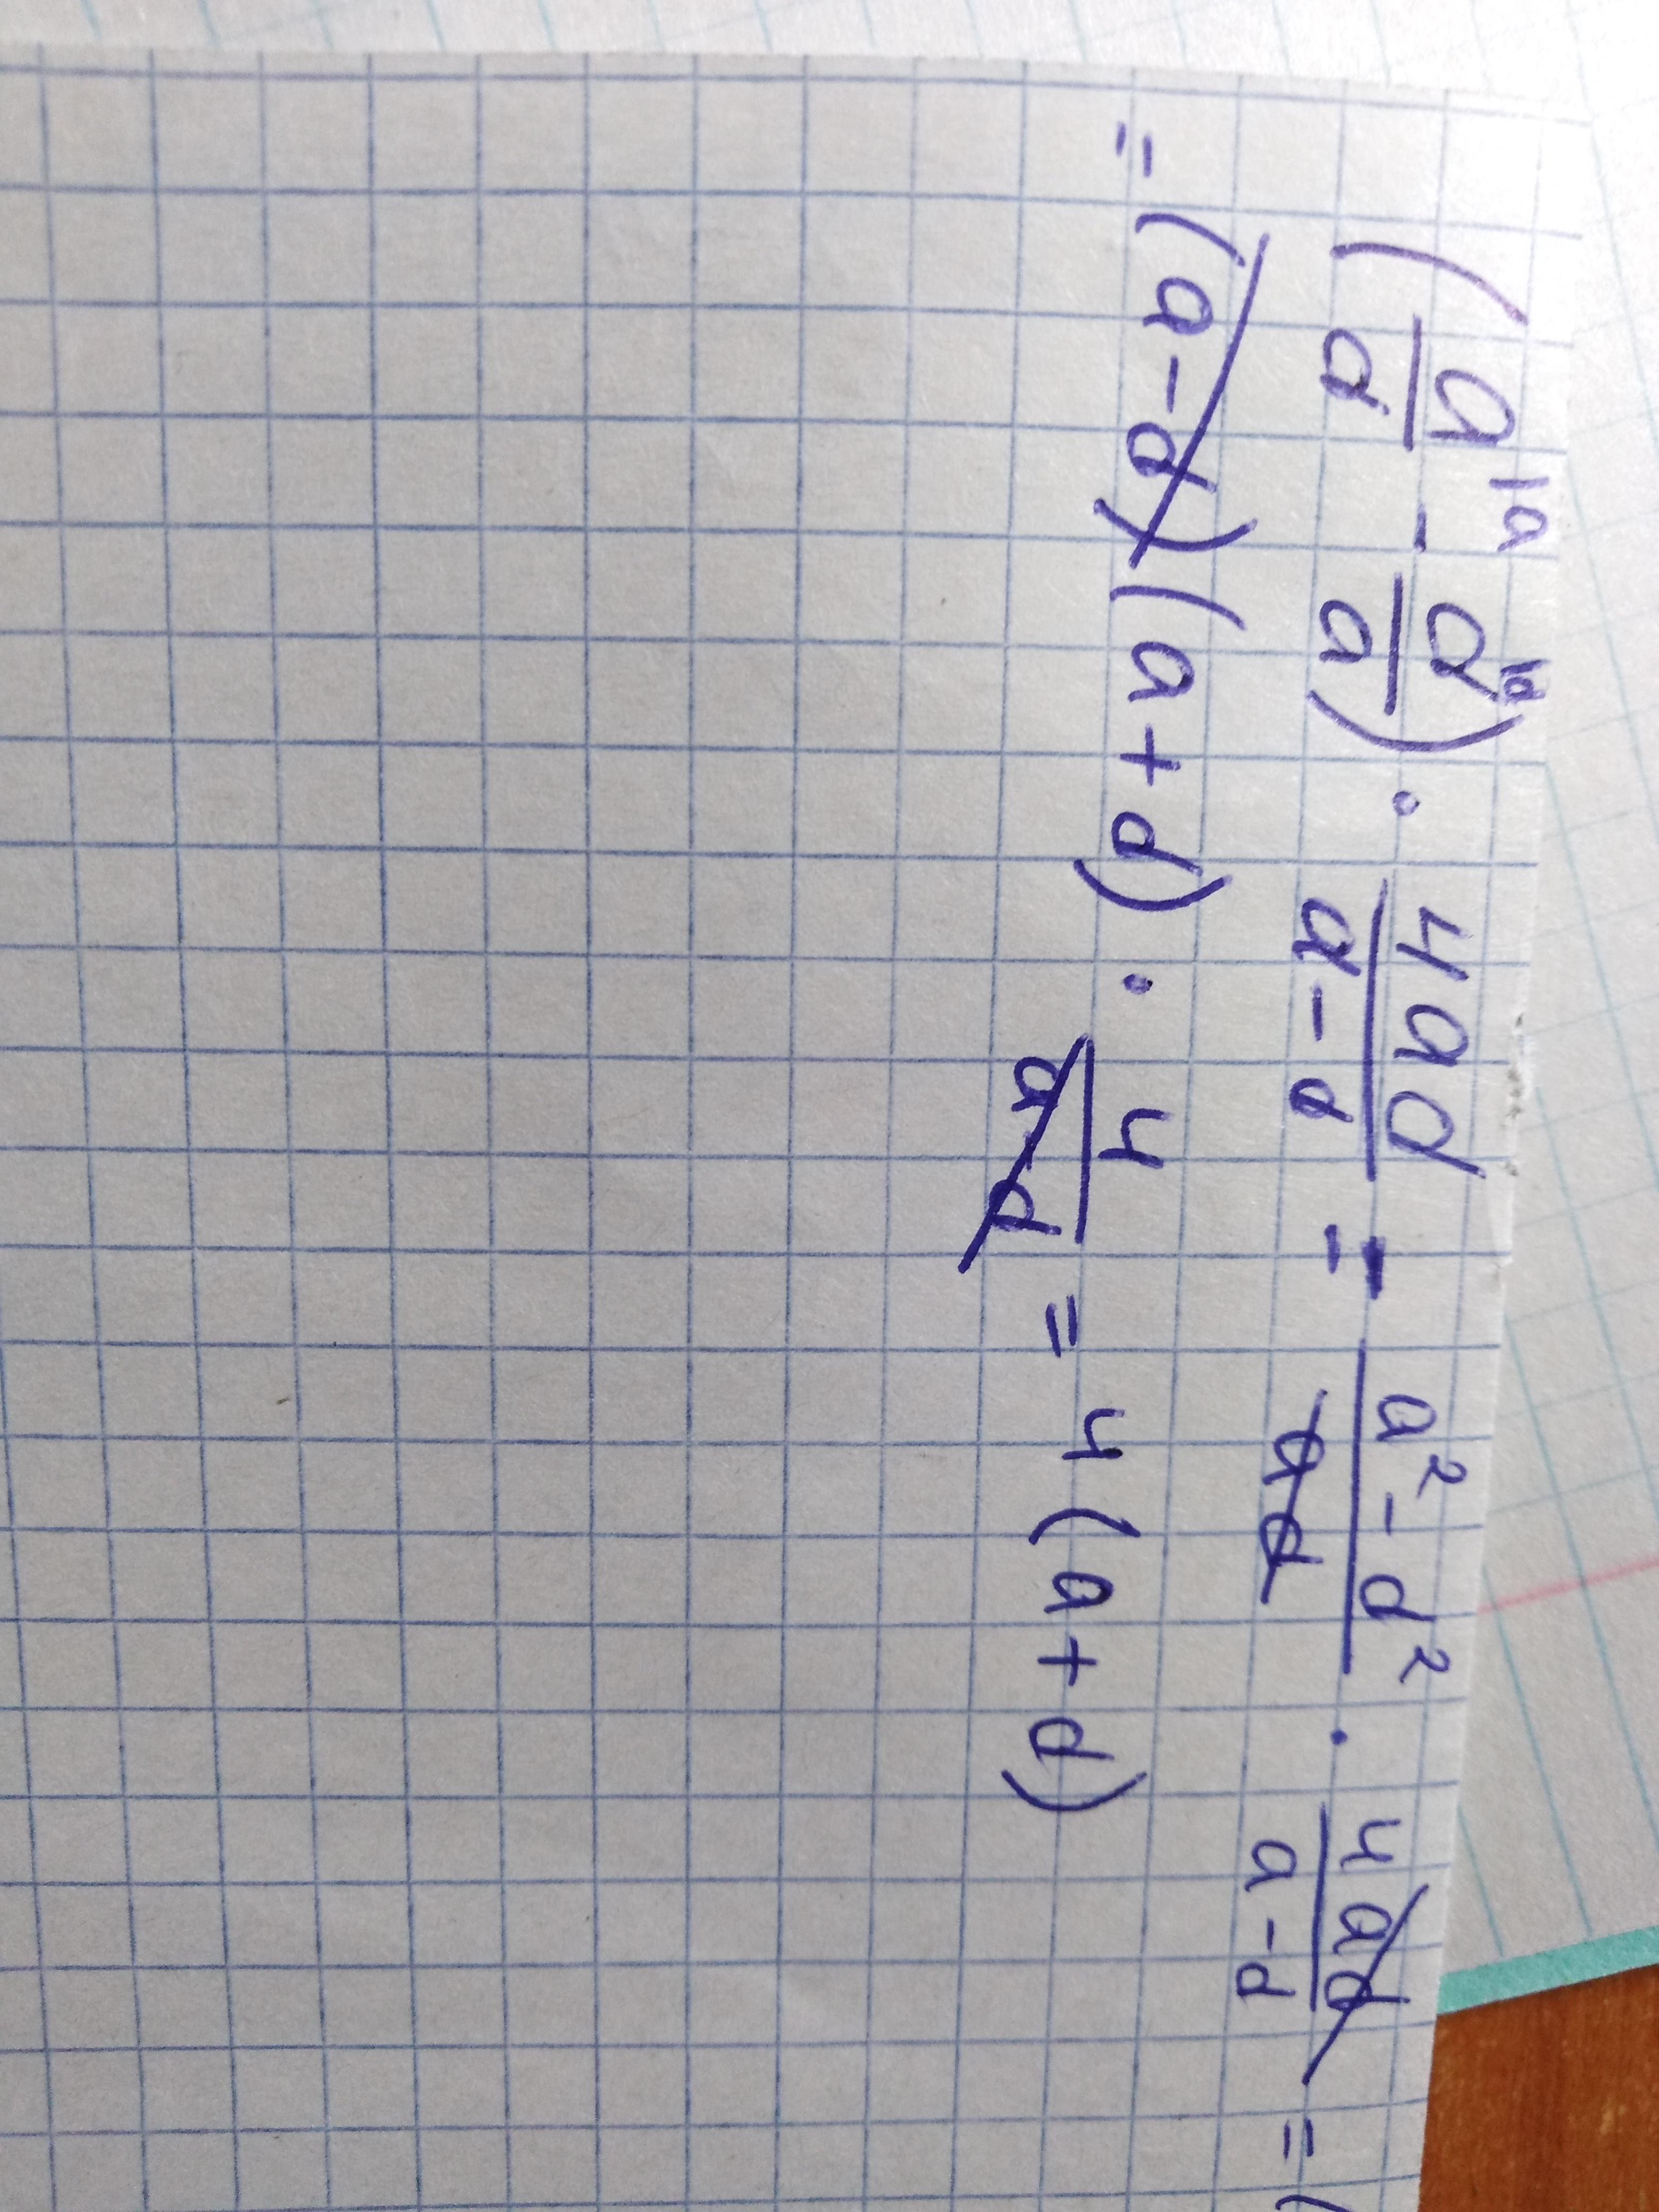 (a/d^{\a} - d/a^{\d}) · 4ad/(a-d) = (a²-d²)/(ad) · 4ad/(a-d) = (
= (a-d)(a+d) · 4/(a-d) = 4(a+d)